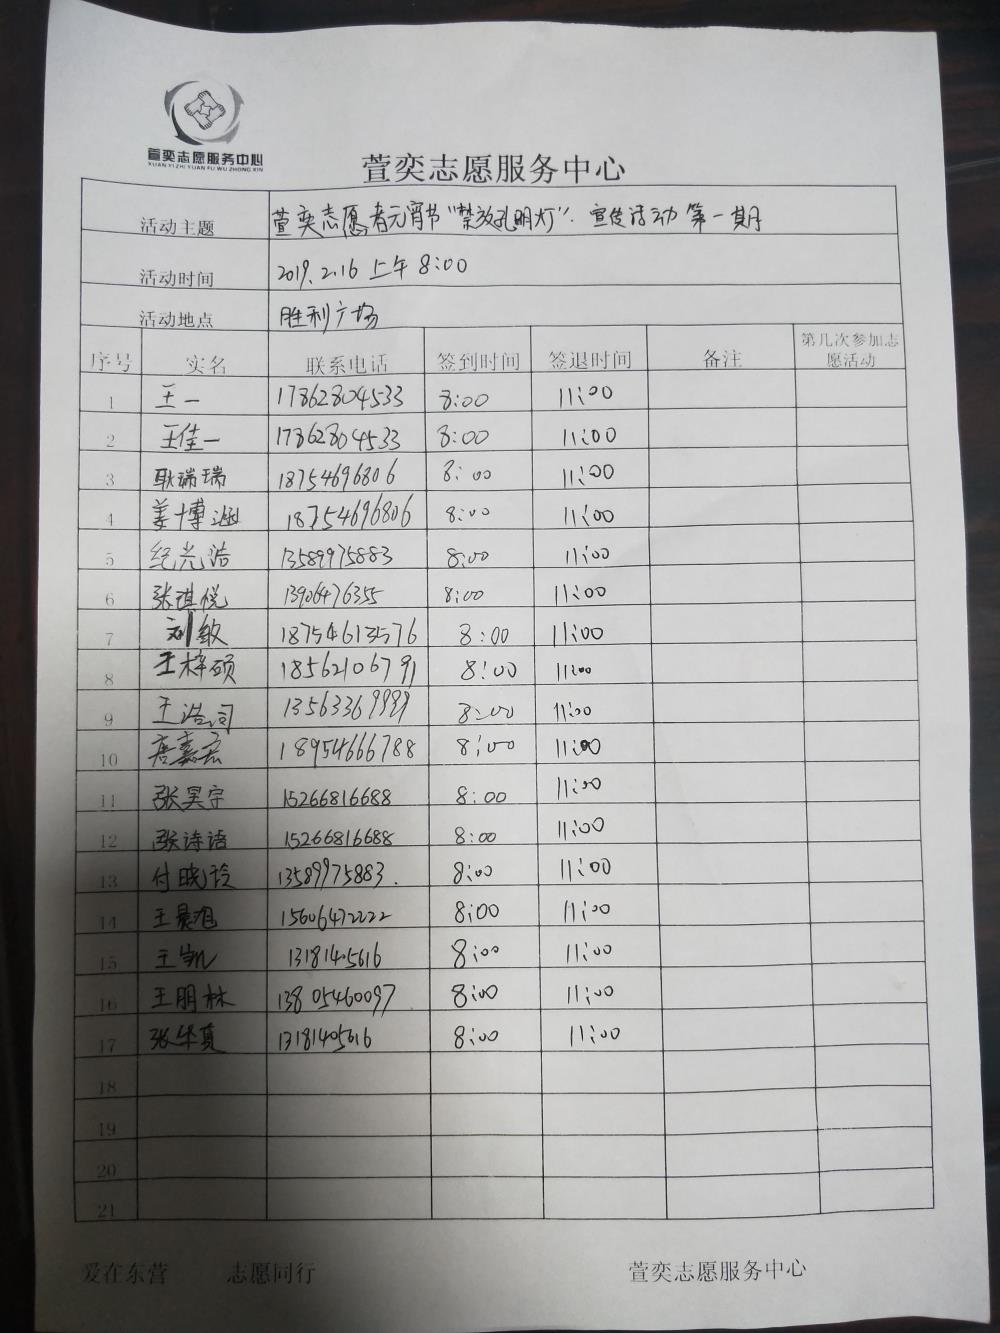 萱奕志愿服务中心
XUAN YI ZHI YUAN FU WU ZHONG XIN
萱奕志愿服务中心
活动主题 萱奕志愿者元宵节"禁放孔明灯"宣传活动 第一期
活动时间 2019.2.16 上午 8:00
活动地点 胜利广场
序号 实名 联系电话 签到时间 签退时间 备注 第几次参加志愿活动
1 王一 17862804533 8:00 11:00
2 王佳一 17862804533 8:00 11:00
3 耿瑞瑞 18754696806 8:00 11:00
4 姜博涵 18754696806 8:00 11:00
5 纪光浩 13589975883 8:00 11:00
6 张琪悦 13906476355 8:00 11:00
7 刘敏 18754613576 8:00 11:00
8 王梓硕 18562106791 8:00 11:00
9 王浩同 8:00 11:00
10 唐嘉宏 18954666788 8:00 11:00
11 张昊宇 15266816688 8:00 11:00
12 张诗语 15266816688 8:00 11:00
13 付晓玲 13589975883. 8:00 11:00
14 王晨旭 15606472222 8:00 11:00
15 王凯 13181405616 8:00 11:00
16 王朋林 13805460097 8:00 11:00
17 张华真 13181405616 8:00 11:00
18
19
20
21
爱在东营 志愿同行 萱奕志愿服务中心